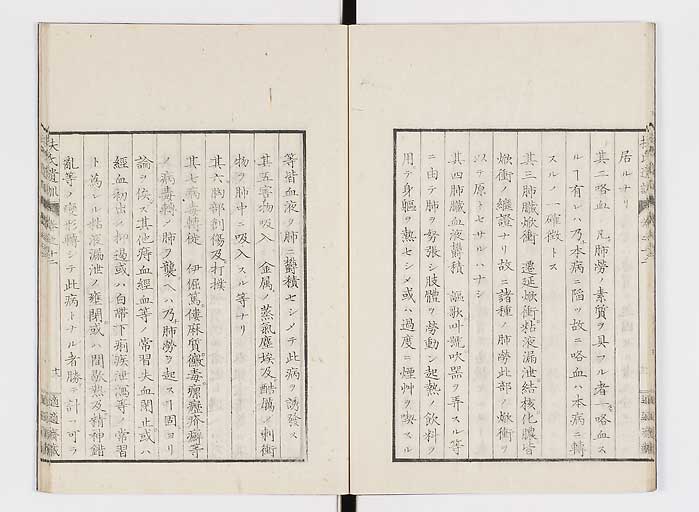 居ルナリ
其二咯血 凡ソ肺勞ノ素質ヲ具フル者ニ咯血ス
ルヿ有レハ乃チ本病ニ陷ツ故ニ咯血ハ本病ニ轉
スルノ一確徴トス
其三肺臓焮衝 遷延焮衝粘液漏泄結核化膿皆
焮衝ノ繼證ナリ故ニ諸種ノ肺勞此部ノ焮衝ヲ
以テ原トセサルハナシ
其四肺臓血液欝積 謳歌叫號吹器ヲ弄スル等
ニ由テ肺ヲ努張シ肢體ヲ勞動シ起熱ノ飲料ヲ
用テ身軀ヲ熱セシメ或ハ過度ニ煙艸ヲ喫スル
等皆血液ヲ肺ニ欝積セシメテ此病ヲ誘發ス
其五害物吸入 金属ノ蒸氣塵埃及酷厲ノ刺衝
物ヲ肺中ニ吸入スル等ナリ
其六胸部創傷及打撲
其七病毒轉徙 伊倔篤僂麻質黴毒瘰癧疥癬等
ノ病毒轉シテ肺ヲ襲ヘハ乃チ肺勞ヲ起スヿ固ヨリ
論ヲ俟ス其他痔血經血等ノ常習失血閉止或ハ
經血初出ノ抑遏或ハ白帶下痢疾泄瀉等ノ常習
ト為レル粘液漏泄ノ壅閉或ハ間歇熱及精神錯
亂等ノ變形轉シテ此病トナル者勝テ計フ可ラ
扶氏遺訓